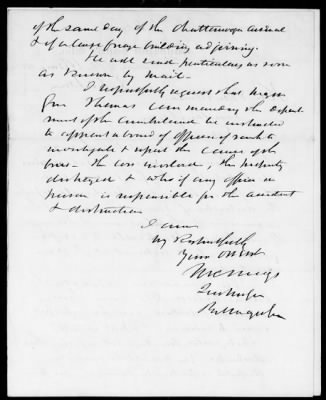 of the same day of the Chattanooga Arsenal
& of a large frame building adjoining.
He will send particulars as soon
as known by mail -
I respectfully request that Major
Gen Thomas commanding the depart
ment of the Cumberland be instructed
to appoint a board of officers of rank to
investigate & report the cause of the
fire - the loss involved, the property
destroyed & who if any officer or
person is responsible for the accident
& destruction
I am
Very Respectfully
Your Ob Svt
M C Meigs